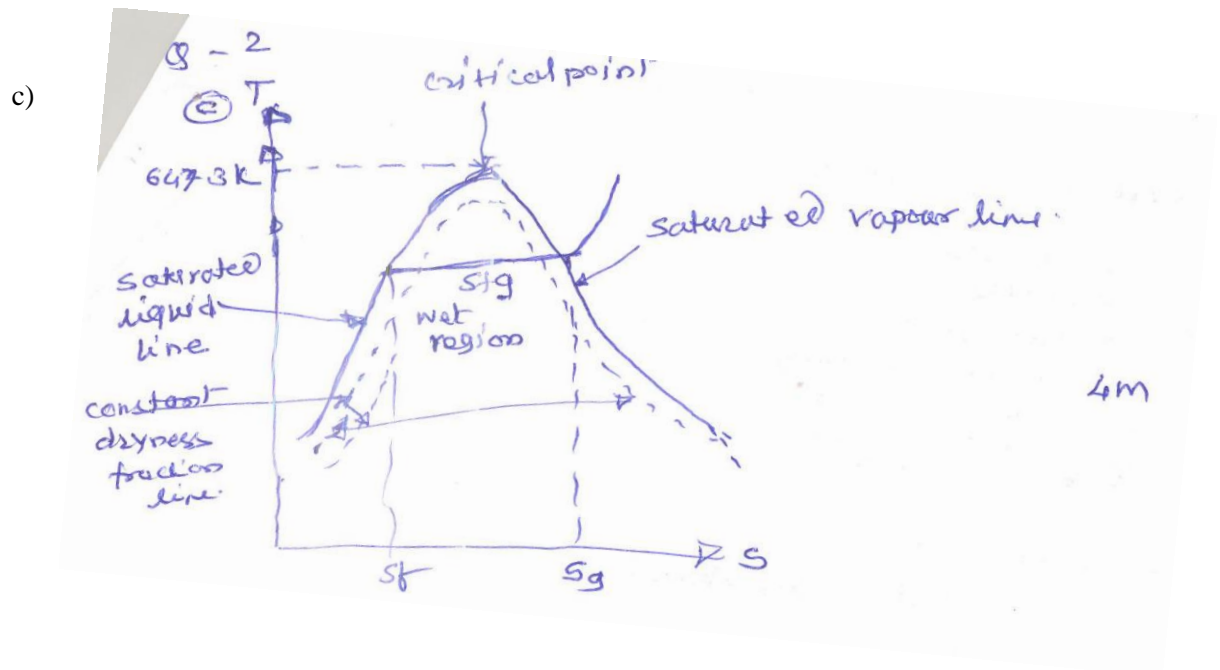 Q - 2
c)
(c) T
critical point
647.3K
saturated vapour line.
saturated
liquid
line
sfg
wet
region
constant
dryness
fraction
line.
4m
sf
sg
S